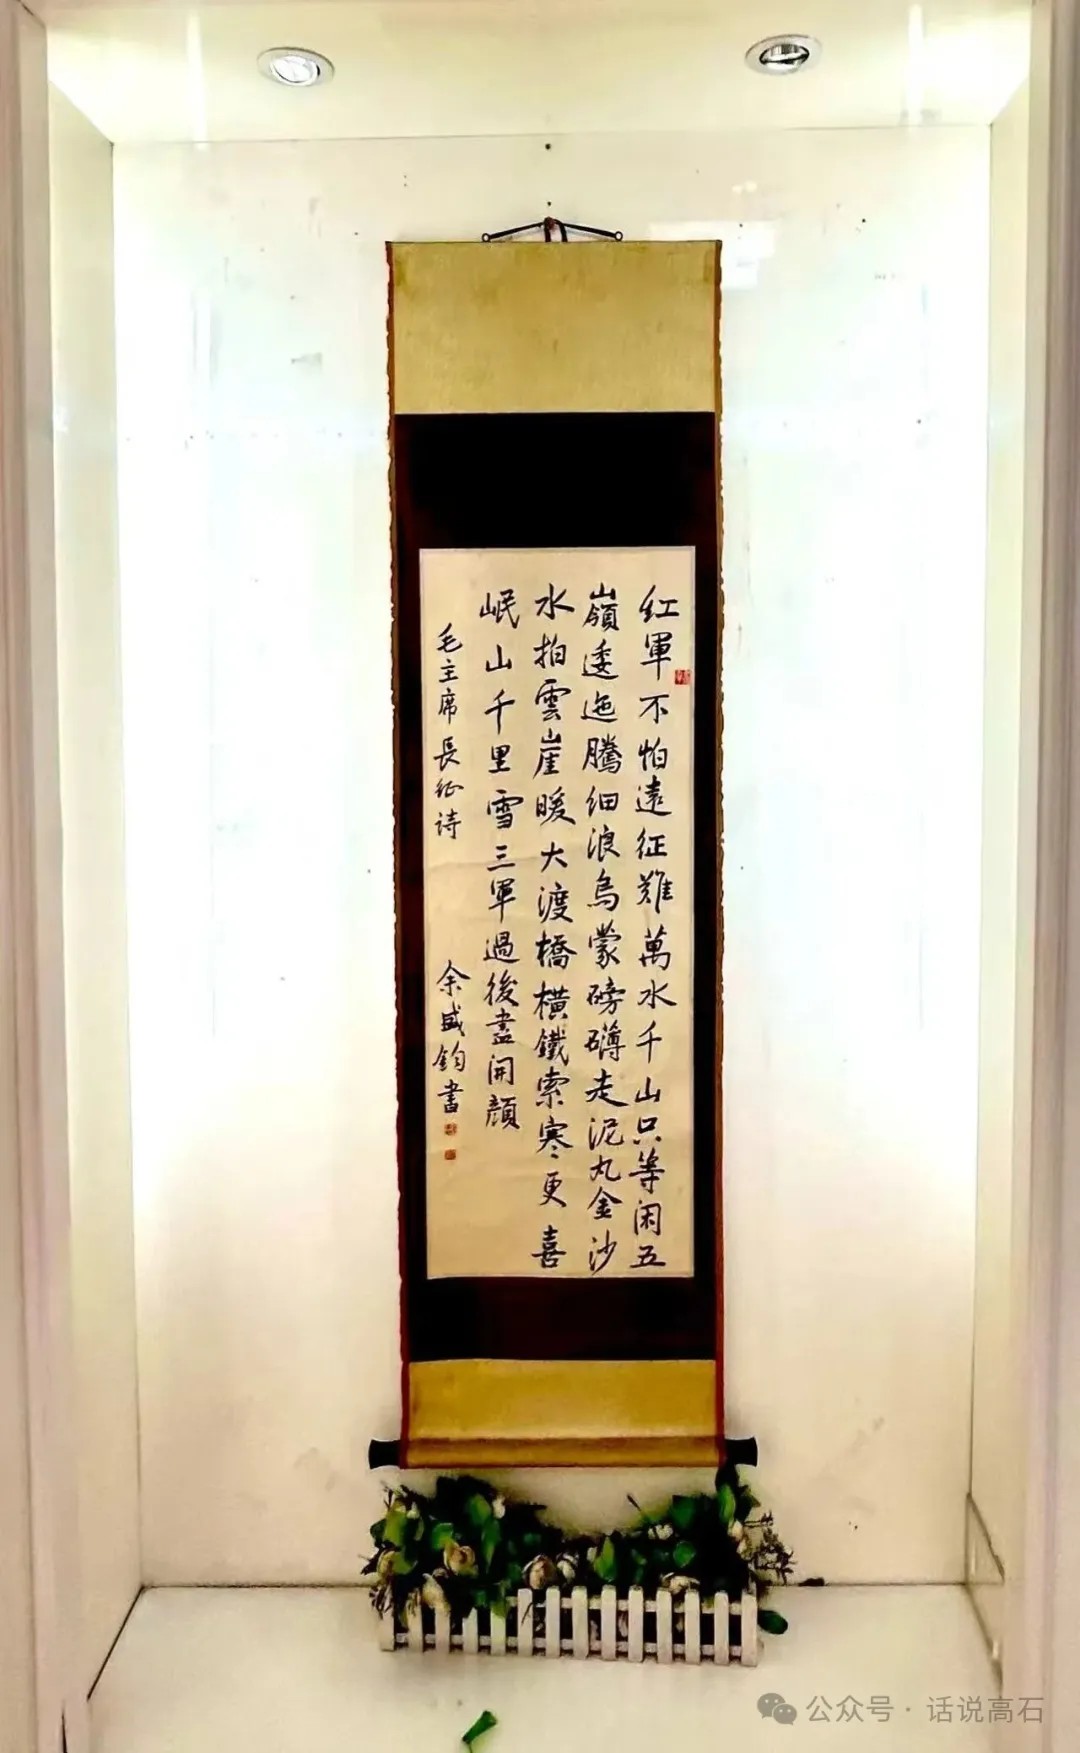 红軍不怕遠征難萬水千山只等闲五
嶺逶迤騰细浪烏蒙磅礴走泥丸金沙
水拍雲崖暖大渡橋橫鐵索寒更喜
岷山千里雪三軍過後盡開顔
毛主席長征诗
余盛鈞書
公众号·话说高石